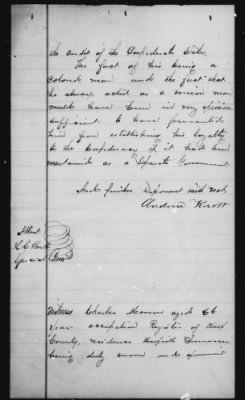 the credit of the Confederate States.
The fact of his being a
colored man and the fact that
he always acted as a union man
must have been in my opinion
sufficient to have prevented
him from establishing his loyalty
to the Confederacy if it had been
maintained as a Separate Government
And further Deponent saith not,
Andrew Knott
Attest
Special
Witness Charles aged 66
year occupation Register of
County, residence Tennessee
being duly sworn and examined